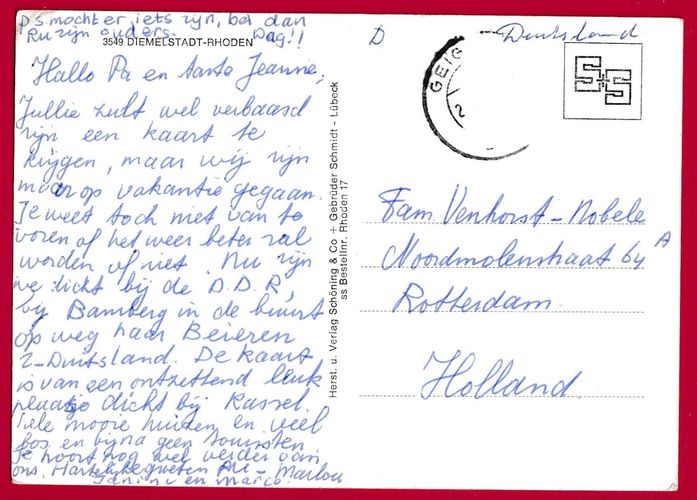 PS mocht er iets zijn, bel dan
Ru zijn ouders. Dag!!
3549 DIEMELSTADT-RHODEN
Hallo Pa en tante Jeanne,
Jullie zult wel verbaasd
zijn een kaart te
krijgen, maar wij zijn
maar op vakantie gegaan.
Je weet toch niet van te
voren of het weer beter zal
worden of niet. Nu zijn
we dicht bij de D.D.R,
bij Bamberg in de buurt
op weg naar Beieren
Z-Duitsland. De kaart
is van een ontzettend leuk
plaatsje dicht bij Kassel.
Hele mooie huizen en veel
bos en bijna geen toeristen
Je hoort nog wel verder van
ons. Hartelijke groeten Ru - Marlou
en Marco.
Herst. u. Verlag Schöning & Co + Gebrüder Schmidt - Lübeck
ss Bestellnr. Rhoden 17
D Duitsland
GEIS
2
S+S
Fam Venhorst-Nobele
Noordmolenstraat 64 A
Rotterdam
Holland.